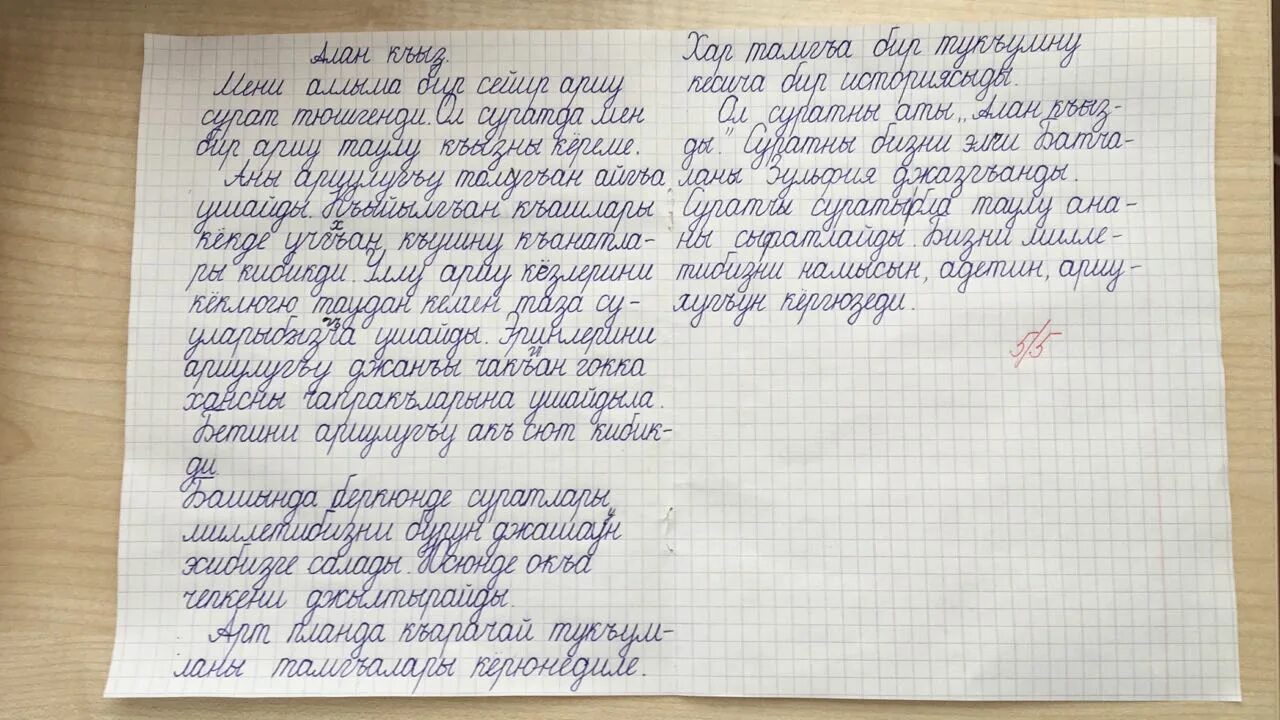 Алан къыз.
Мени аллыма бир сейир ариу
сурат тюшгенди. Ол суратда мен
бир ариу таулу къызны кёреме.
Аны ариулугъу толугъан айгъа
ушайды. Къыйылгъан къашлары
кёкде учхан къушну къанатла-
ры кибикди. Уллу ариу кёзлерини
кёклюгю таудан келген таза су-
уларыбызгъа ушайды. Эринлерини
ариулугъу джанъы чакъгъан гокка
хансны чапракъларына ушайдыла.
Бетини ариулугъу акъ сют кибик-
ди.
Башында беркюнде суратлары,
миллетибизни бурун джашауун
эсибизге салады. Юсюнде окъа
чепкени джылтырайды.
Арт планда къарачай тукъум-
ланы тамгъалары кёрюнедиле.
Хар тамгъа бир тукъумну
кесича бир историясыды.
Ол суратны аты „Алан къыз-
ды". Суратны бизни эгеч Батча-
ланы Зульфия джазгъанды.
Суратчы сураты бла таулу ана-
ны сыфатлайды. Бизни милле-
тибизни намысын, адетин, ариу-
лугъун кёргюзеди.
5/5